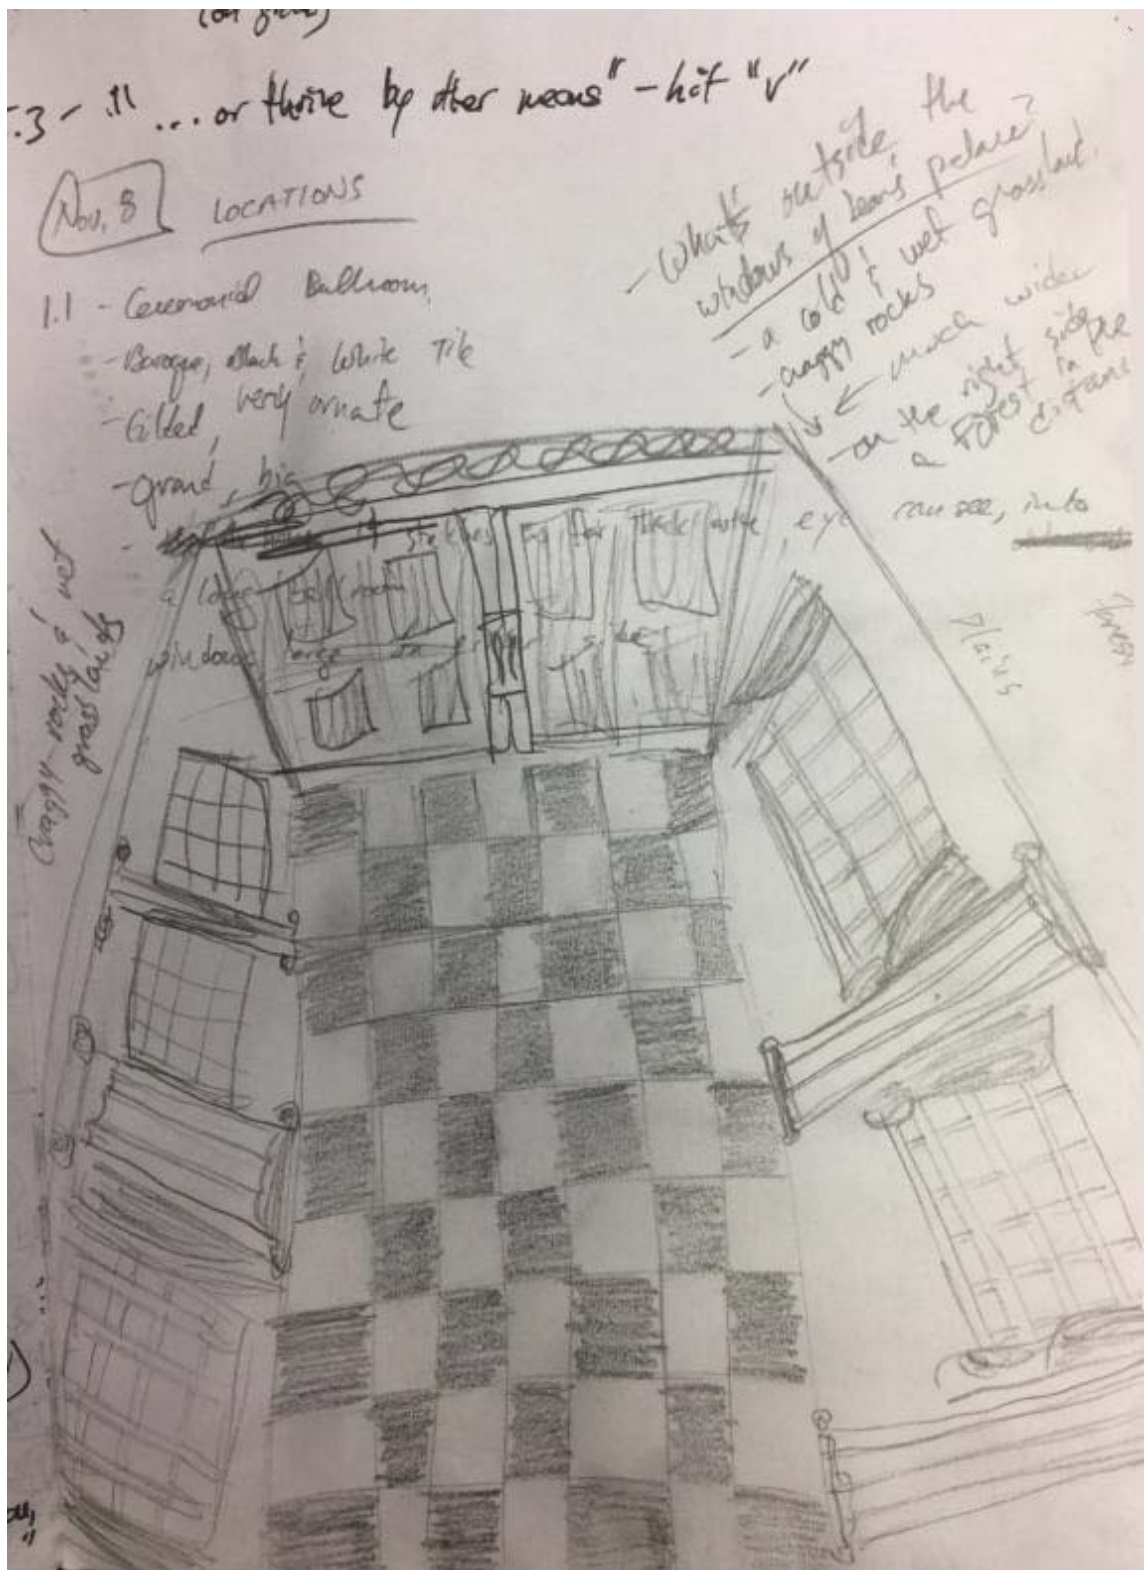 (on
.3 - " ... or thrive by other means" - hit "v"
Nov. 8 LOCATIONS
1.1 - Ceremonial Ballroom,
- Baroque, Black & White Tile
- Gilded, very ornate
- grand, big
- it stretches as far as the eye can see, into
a large ballroom
windows large on either side
- What's outside the
windows of Lear's palace?
- a cold & wet grassland.
- craggy rocks
much wider
- on the right side
a forest in the
distance
Craggy rocks & wet
grasslands
Plains